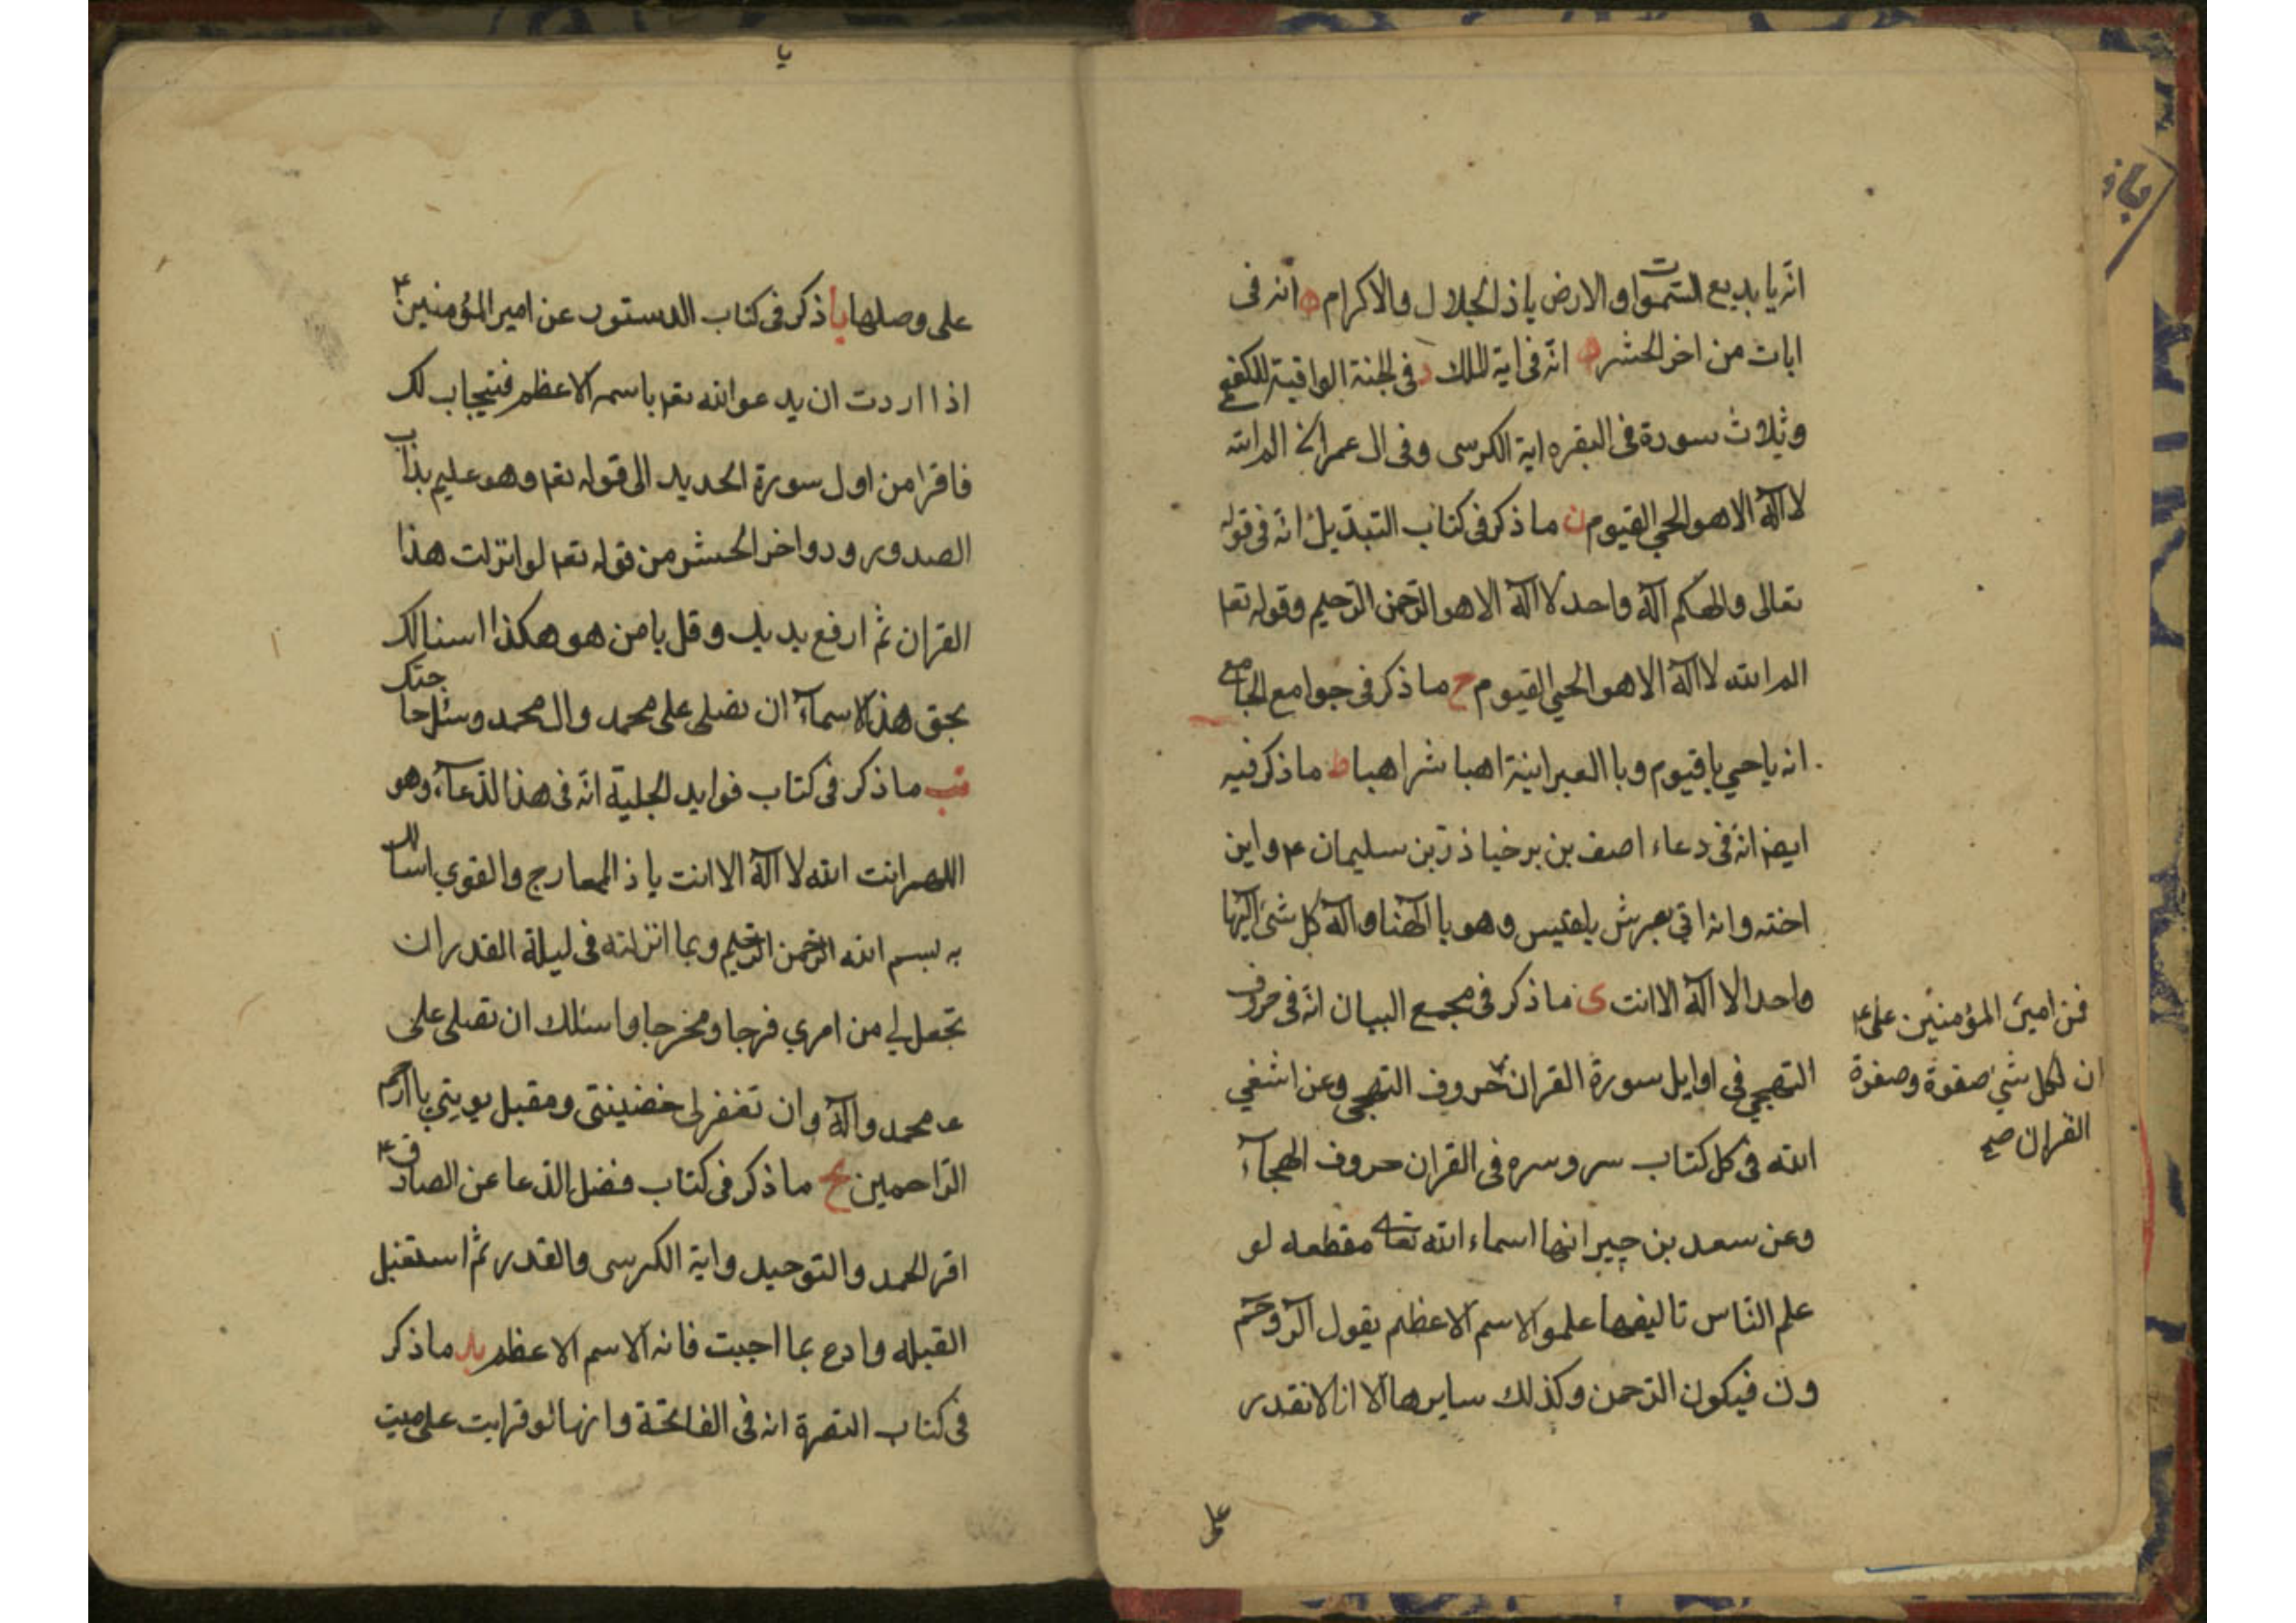 انّه يا بديع السّموات والارض ياذ الجلال والاكرام ه انه فى
ايات من اخر الحشر ه انّه فى اية الملك فى الجنة الواقية للكفعمى
وثلاث سورة فى البقره اية الكرسى وفى ال عمران الم الله
لا اله الا هو الحي القيوم ن ما ذكر فى كتاب التبديل انّه فى قوله
تعالى والهكم اله واحد لا اله الا هو الرّحمن الرّحيم وقوله تعا
الم الله لا اله الا هو الحي القيوم ح ما ذكر فى جوامع الجامع
انه ياحي ياقيوم وبا العبرانية اهيا شراهيا ط ما ذكر فيه
ايضا انّه فى دعاء اصف بن برخيا وزير بن سليمان ع واين
اخته وانه اتي بعرش بلقيس وهو يا الهنا واله كل شئ الها
واحدا لا اله الا انت ى ما ذكر فى مجمع البيان انّه فى حروف
التهجي فى اوايل سورة القران حروف التهجى وعن اشفي
الله فى كل كتاب سر وسره فى القران حروف الهجآء
وعن سعد بن جبير انها اسماء الله تعا مقطعه لو
علم النّاس تاليفها علموا الاسم الاعظم يقول الر وحم
ون فيكون الرّحمن وكذلك سايرها الا انا لا نقدر
فمن امير المؤمنين على ع
ان لكل شئ صفوة وصفوة
القران صح
على
يا
على وصلها يا ذكر فى كتاب الدستور عن امير المؤمنين ع
اذا اردت ان يدعو الله تعا باسمه الاعظم فتيجاب لك
فاقرا من اول سورة الحديد الى قوله تعا وهو عليم بذات
الصدور ودواخر الحشر من قوله تعا لو انزلت هذا
القران ثم ارفع يديك وقل يا من هو هكذا اسئالك
بحق هذه الاسمآء ان تصلى على محمد وال محمد وسئل حاجتك
يب ما ذكر فى كتاب فوايد الجلية انّه فى هذا الدّعآء وهو
اللهم انت الله لا اله الا انت ياذ المعارج والقوي اسالك
به بسم الله الرّحمن الرّحيم وبما انزلته فى ليلة القدر ان
تجعل لي من امري فرجا ومخرجا واسئلك ان تصلى على
محمد واله وان تغفر لى خضيئتى ومقبل توبتي يا ارحم
الرّاحمين يج ما ذكر فى كتاب فضل الدّعا عن الصادق ع
اقر الحمد والتوحيد واية الكرسى والقدر ثم استقبل
القبله وادع بما احببت فانه الاسم الاعظم يد ما ذكر
فى كتاب البصرة انه فى الفاتحة وانها لو قرايت على ميت